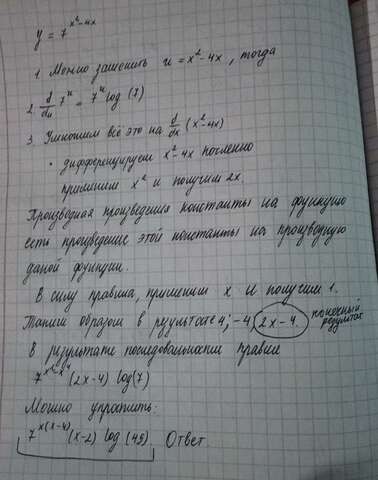 y = 7^(x²-4x)
1. Можно заменить u = x²-4x, тогда
2. d/du 7^u = 7^u log (7)
3. Умножим всё это на d/dx (x²-4x)
• дифференцируем x²-4x почленно
применим x² и получим 2x.
Производная произведения константы на функцию
есть произведение этой константы на производную
даной функции.
В силу правила, применим x и получим 1.
Таким образом в результате 4; -4 2x-4.
конечный результат
В результате последовательности правил
7^(x²-4x) (2x-4) log(7)
Можно упростить:
7^(x(x-4)) (x-2) log (49) Ответ.